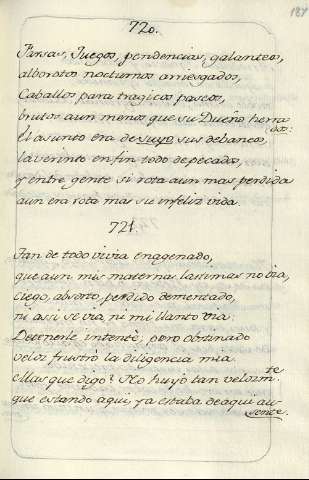 720.
187
Farsas, Juegos, pendencias, galanteos,
alborotos nocturnos arriesgados,
Caballos para tragicos paseos,
brutos aun menos que su Dueño herra
dos:
El asunto era de suyo, sus debaneos,
laverinto en fin todo de pecados,
y entre gente si rota aun mas perdida
aun era rota mas su infeliz vida.
721.
Tan de todo vivia enagenado,
que aun mis maternas lastimas no oia,
ciego, absorto, perdido dementado,
ni assi se via, ni mi llanto via:
Detenerle intentè; pero obstinado
veloz frustrò la diligencia mia
Mas que digo? No huyo tan velozm.te
que estando aqui, ya estaba de aqui au-
sente.